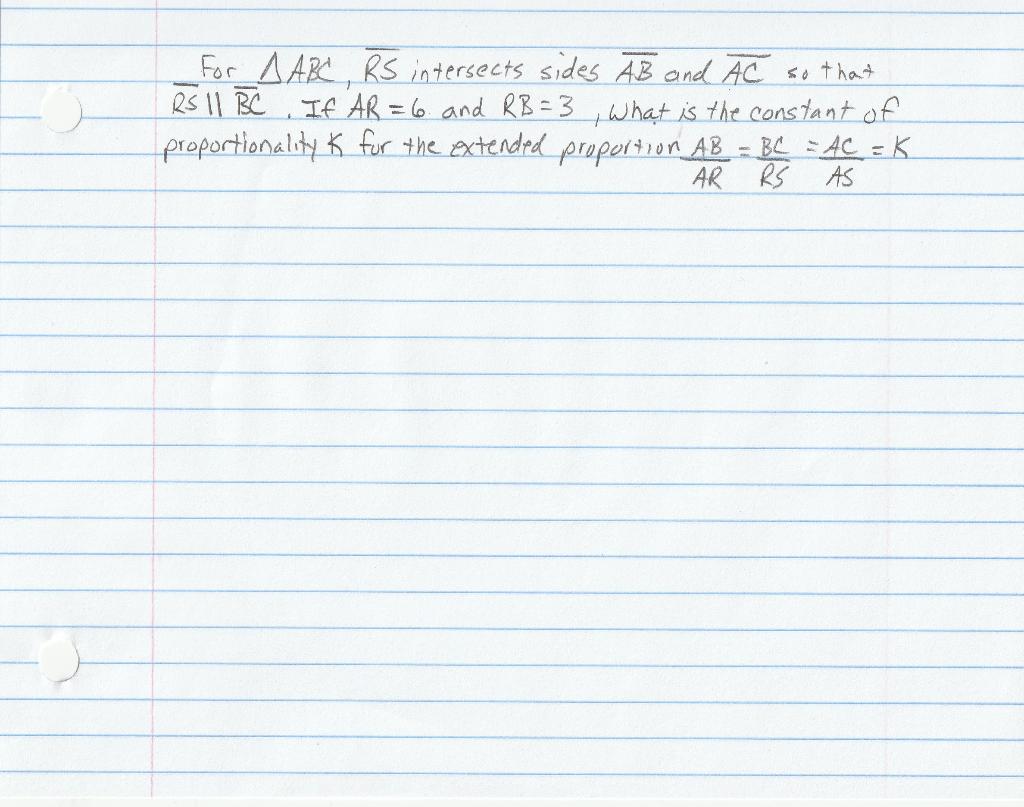 For △ABC, R̅S̅ intersects sides A̅B̅ and A̅C̅ so that
R̅S̅ || B̅C̅. If AR = 6 and RB = 3, What is the constant of
proportionality K for the extended proportion AB/AR = BC/RS = AC/AS = K